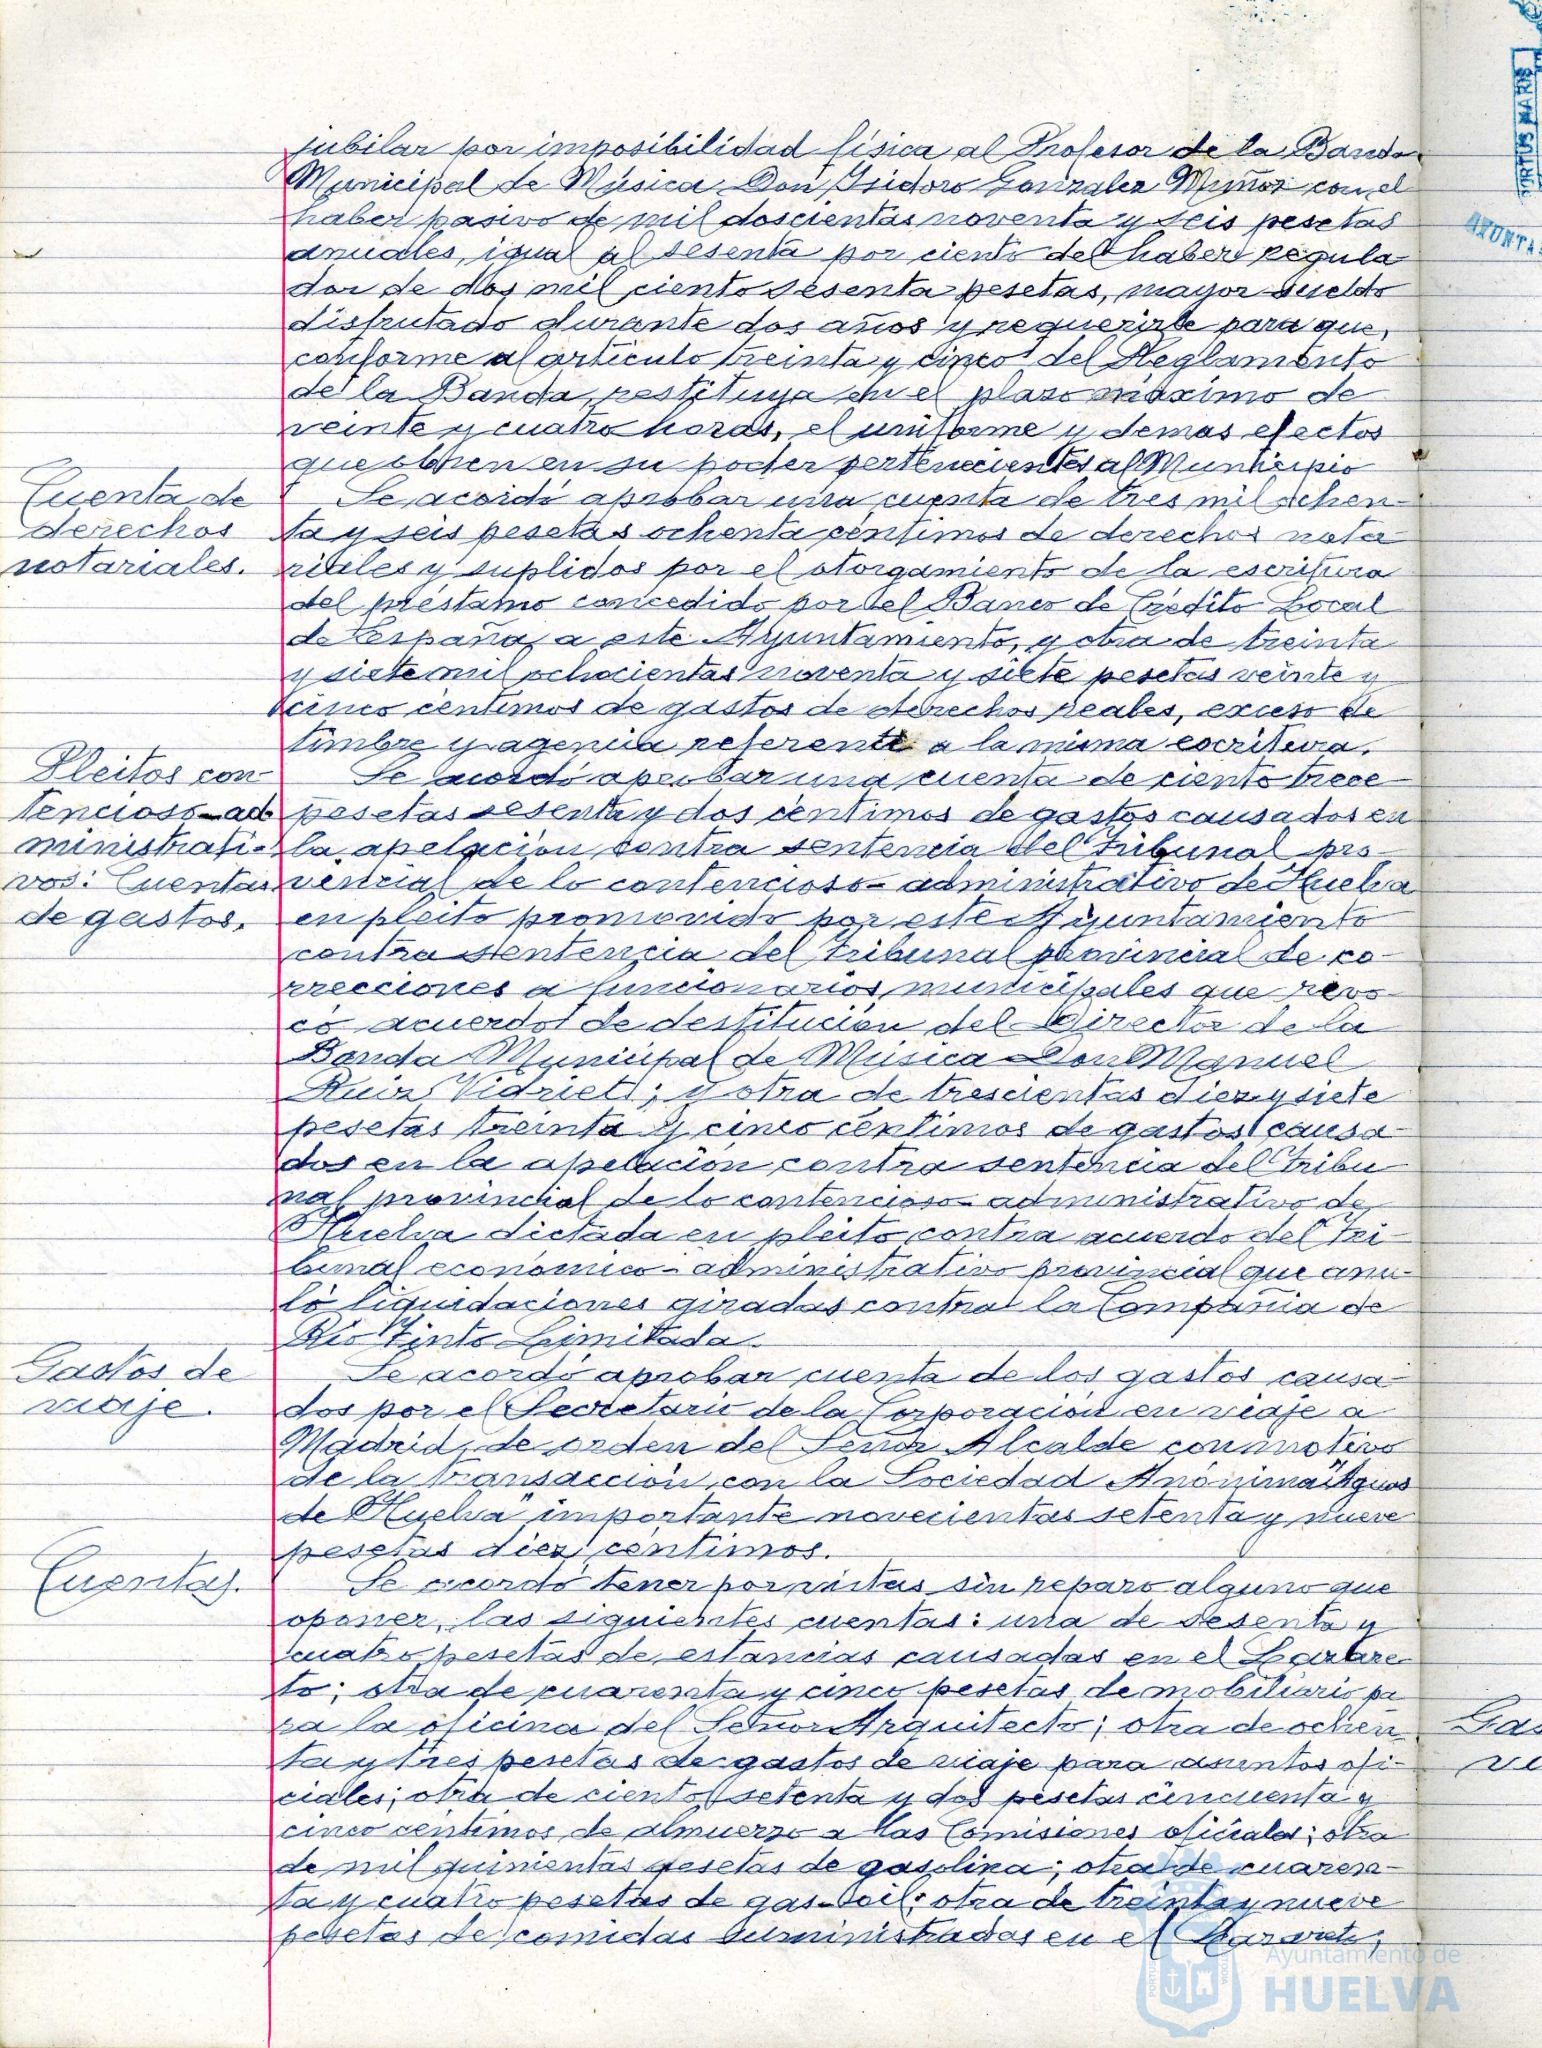 jubilar por imposibilidad física al Profesor de la Banda
Municipal de Música Don Isidoro Gonzalez Muñoz con el
haber pasivo de mil doscientas noventa y seis pesetas
anuales, igual al sesenta por ciento del haber regula-
dor de dos mil ciento sesenta pesetas, mayor sueldo
disfrutado durante dos años y requerirle para que,
conforme al artículo treinta y cinco del Reglamento
de la Banda, restituya en el plazo máximo de
veinte y cuatro horas, el uniforme y demas efectos
que obren en su poder pertenecientes al Municipio
Cuenta de
derechos
notariales.
Se acordó aprobar una cuenta de tres mil ochen-
ta y seis pesetas ochenta céntimos de derechos nota-
riales y suplidos por el otorgamiento de la escritura
del préstamo concedido por el Banco de Crédito Local
de España a este Ayuntamiento, y otra de treinta
y siete mil ochocientas noventa y siete pesetas veinte y
cinco céntimos de gastos de derechos reales, exceso de
timbre y agencia referente a la misma escritura.
Pleitos con-
tencioso-ad
ministrati-
vos: Cuentas
de gastos.
Se acordó aprobar una cuenta de ciento trece
pesetas sesenta y dos céntimos de gastos causados en
la apelación contra sentencia del Tribunal pro-
vencial de lo contencioso-administrativo de Huelva
en pleito promovido por este Ayuntamiento
contra sentencia del Tribunal provincial de co-
rrecciones a funcionarios municipales que revo-
có acuerdo de destitución del Director de la
Banda Municipal de Música Don Manuel
Ruiz Vidriet; y otra de trescientas diez y siete
pesetas treinta y cinco céntimos de gastos causa-
dos en la apelación contra sentencia del Tribu-
nal provincial de lo contencioso-administrativo de
Huelva dictada en pleito contra acuerdo del Tri-
bunal económico-administrativo provincial que anu-
ló liquidaciones giradas contra la Compañia de
Rio Tinto Limitada.
Gastos de
viaje.
Se acordó aprobar cuenta de los gastos causa-
dos por el Secretario de la Corporación en viaje a
Madrid, de orden del Señor Alcalde con motivo
de la transacción con la Sociedad Anónima "Aguas
de Huelva" importante novecientas setenta y nueve
pesetas diez céntimos.
Cuentas.
Se acordó tener por vistas sin reparo alguno que
oponer, las siguientes cuentas: una de sesenta y
cuatro pesetas de estancias causadas en el Lazare-
to; otra de cuarenta y cinco pesetas de mobiliario pa
ra la oficina del Señor Arquitecto; otra de ochen-
ta y tres pesetas de gastos de viaje para asuntos ofi-
ciales; otra de ciento setenta y dos pesetas cincuenta y
cinco céntimos de almuerzo a las Comisiones oficiales; otra
de mil quinientas pesetas de gasolina; otra de cuaren-
ta y cuatro pesetas de gas-oil; otra de treinta y nueve
pesetas de comidas suministradas en el Lazareto;
Gas
vi
PORTUS MARIS
AYUNTA
Ayuntamiento de
HUELVA